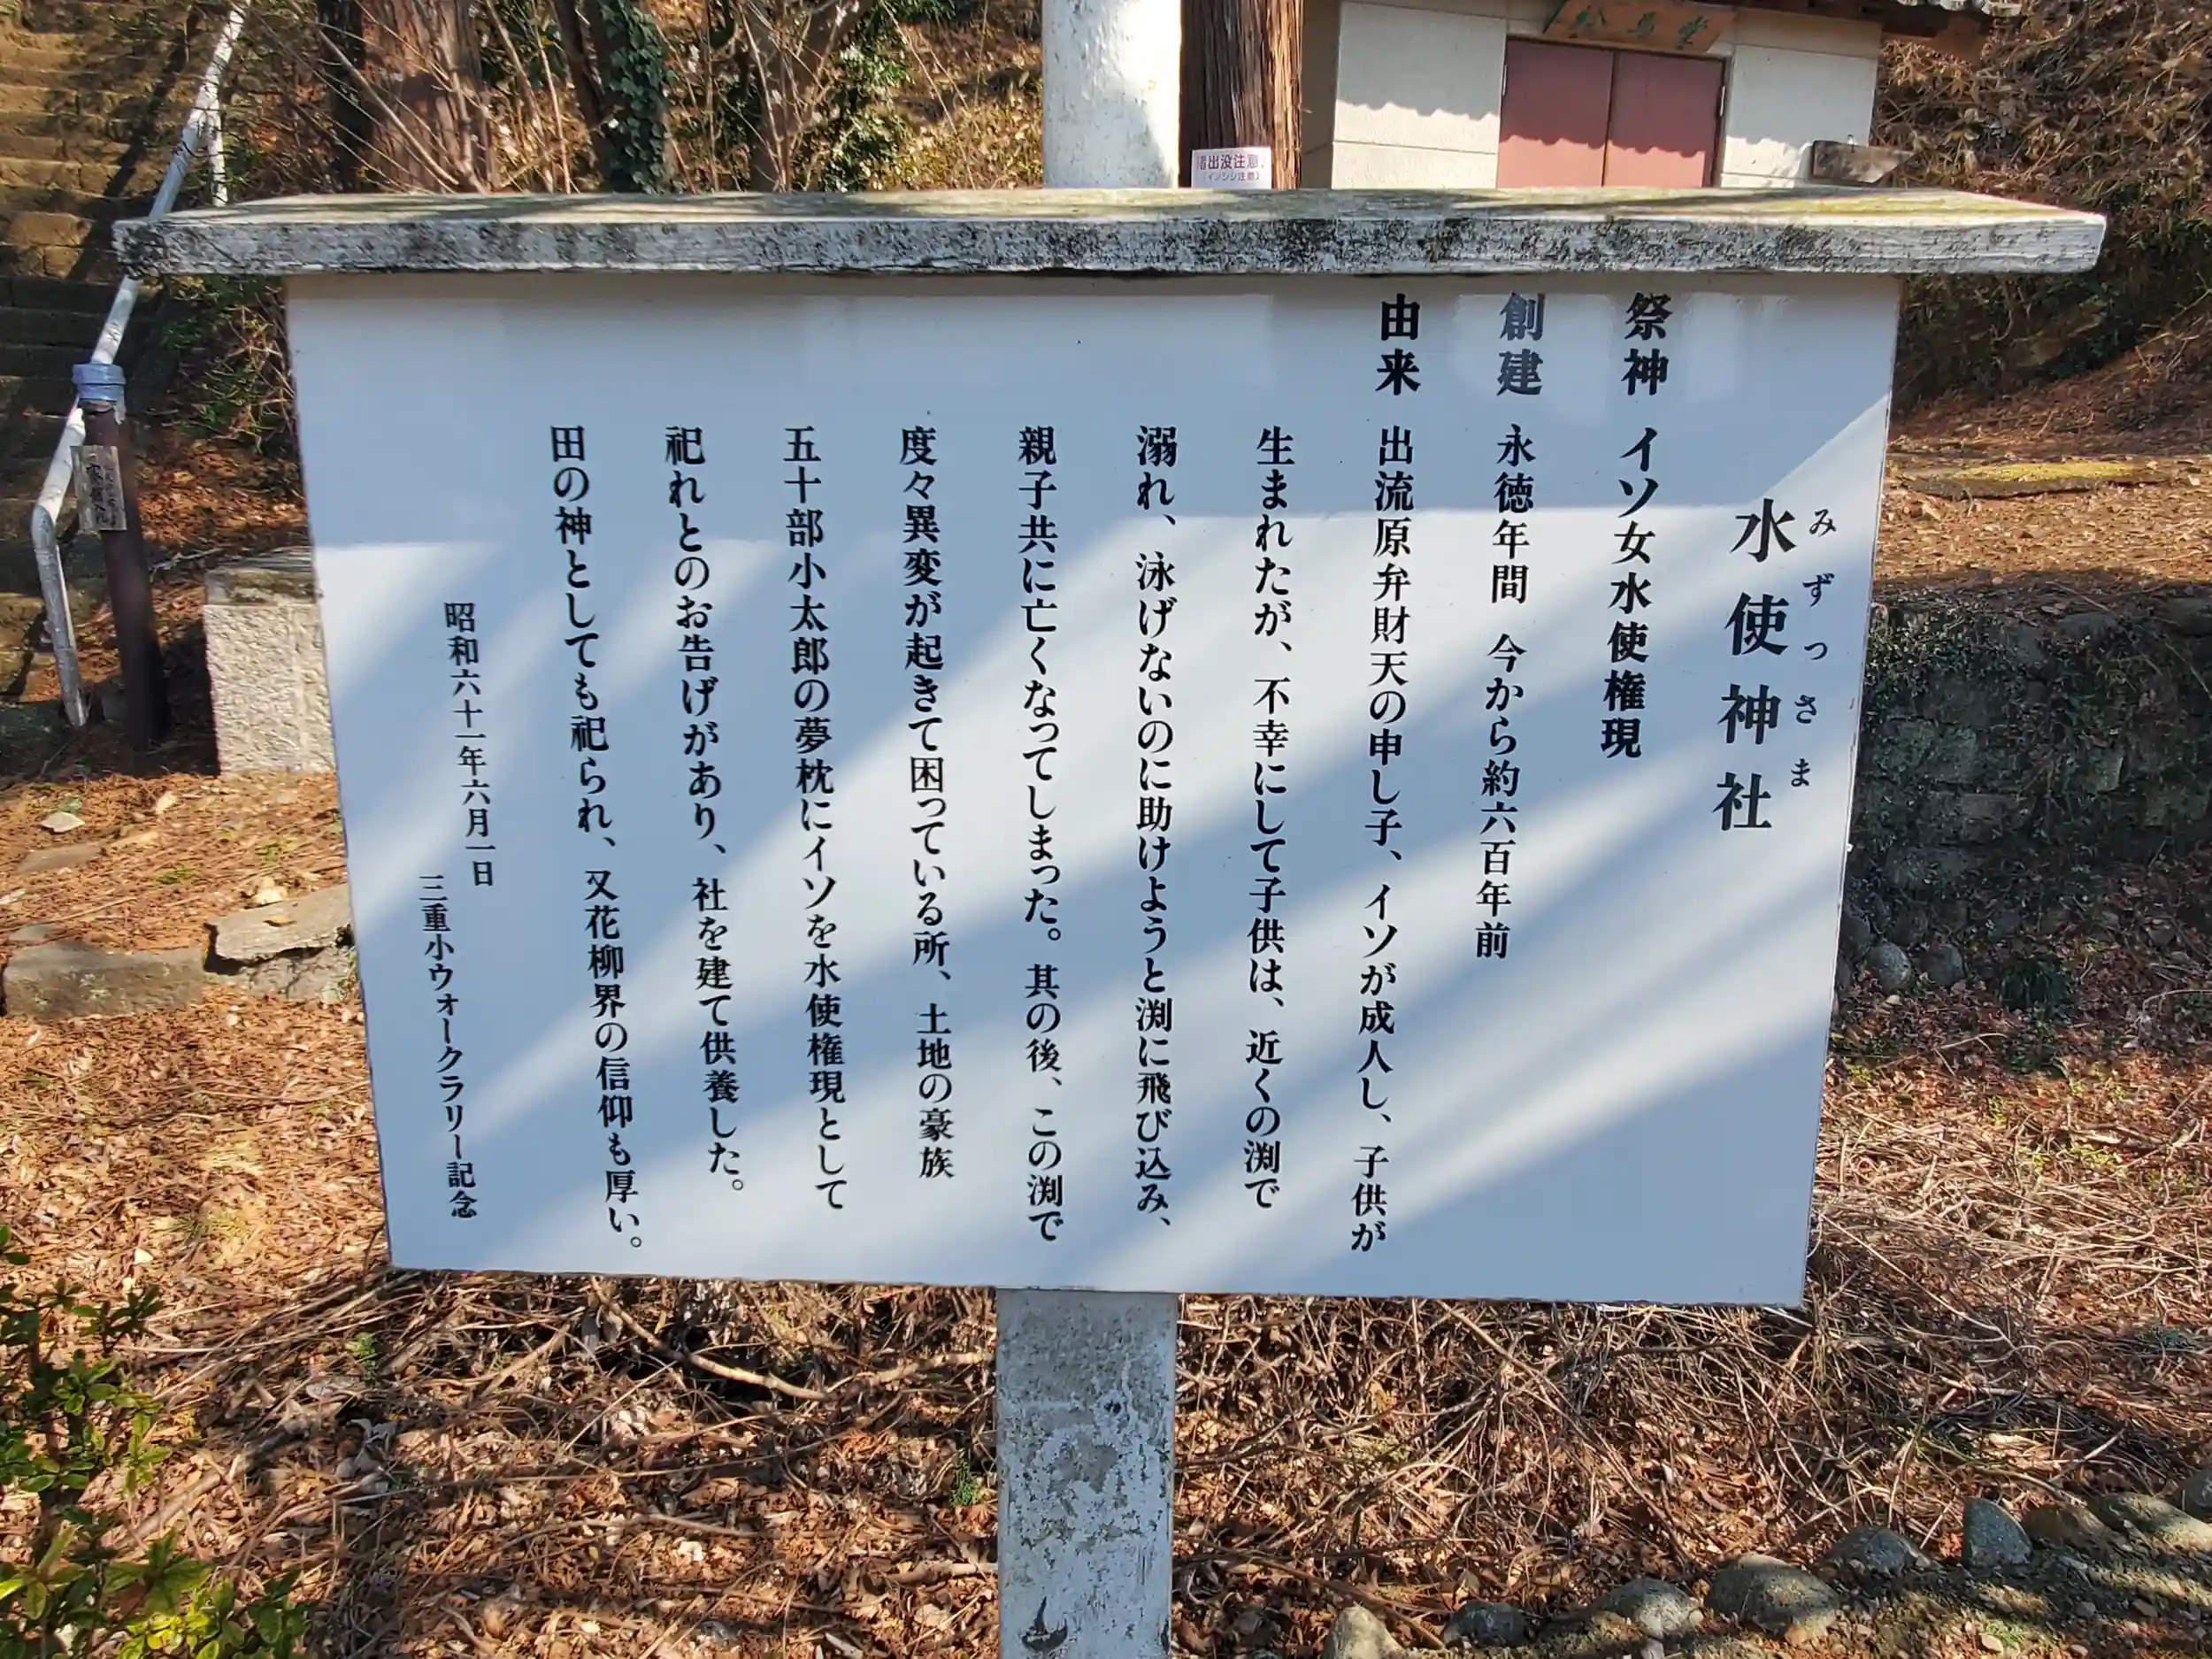 水使神社
みずつさま
祭神 イソ女水使権現
創建 永徳年間 今から約六百年前
由来 出流原弁財天の申し子、イソが成人し、子供が
生まれたが、不幸にして子供は、近くの渕で
溺れ、泳げないのに助けようと渕に飛び込み、
親子共に亡くなってしまった。其の後、この渕で
度々異変が起きて困っている所、土地の豪族
五十部小太郎の夢枕にイソを水使権現として
祀れとのお告げがあり、社を建て供養した。
田の神としても祀られ、又花柳界の信仰も厚い。
昭和六十一年六月一日
三重小ウォークラリー記念
出没注意
(イノシシ注意)